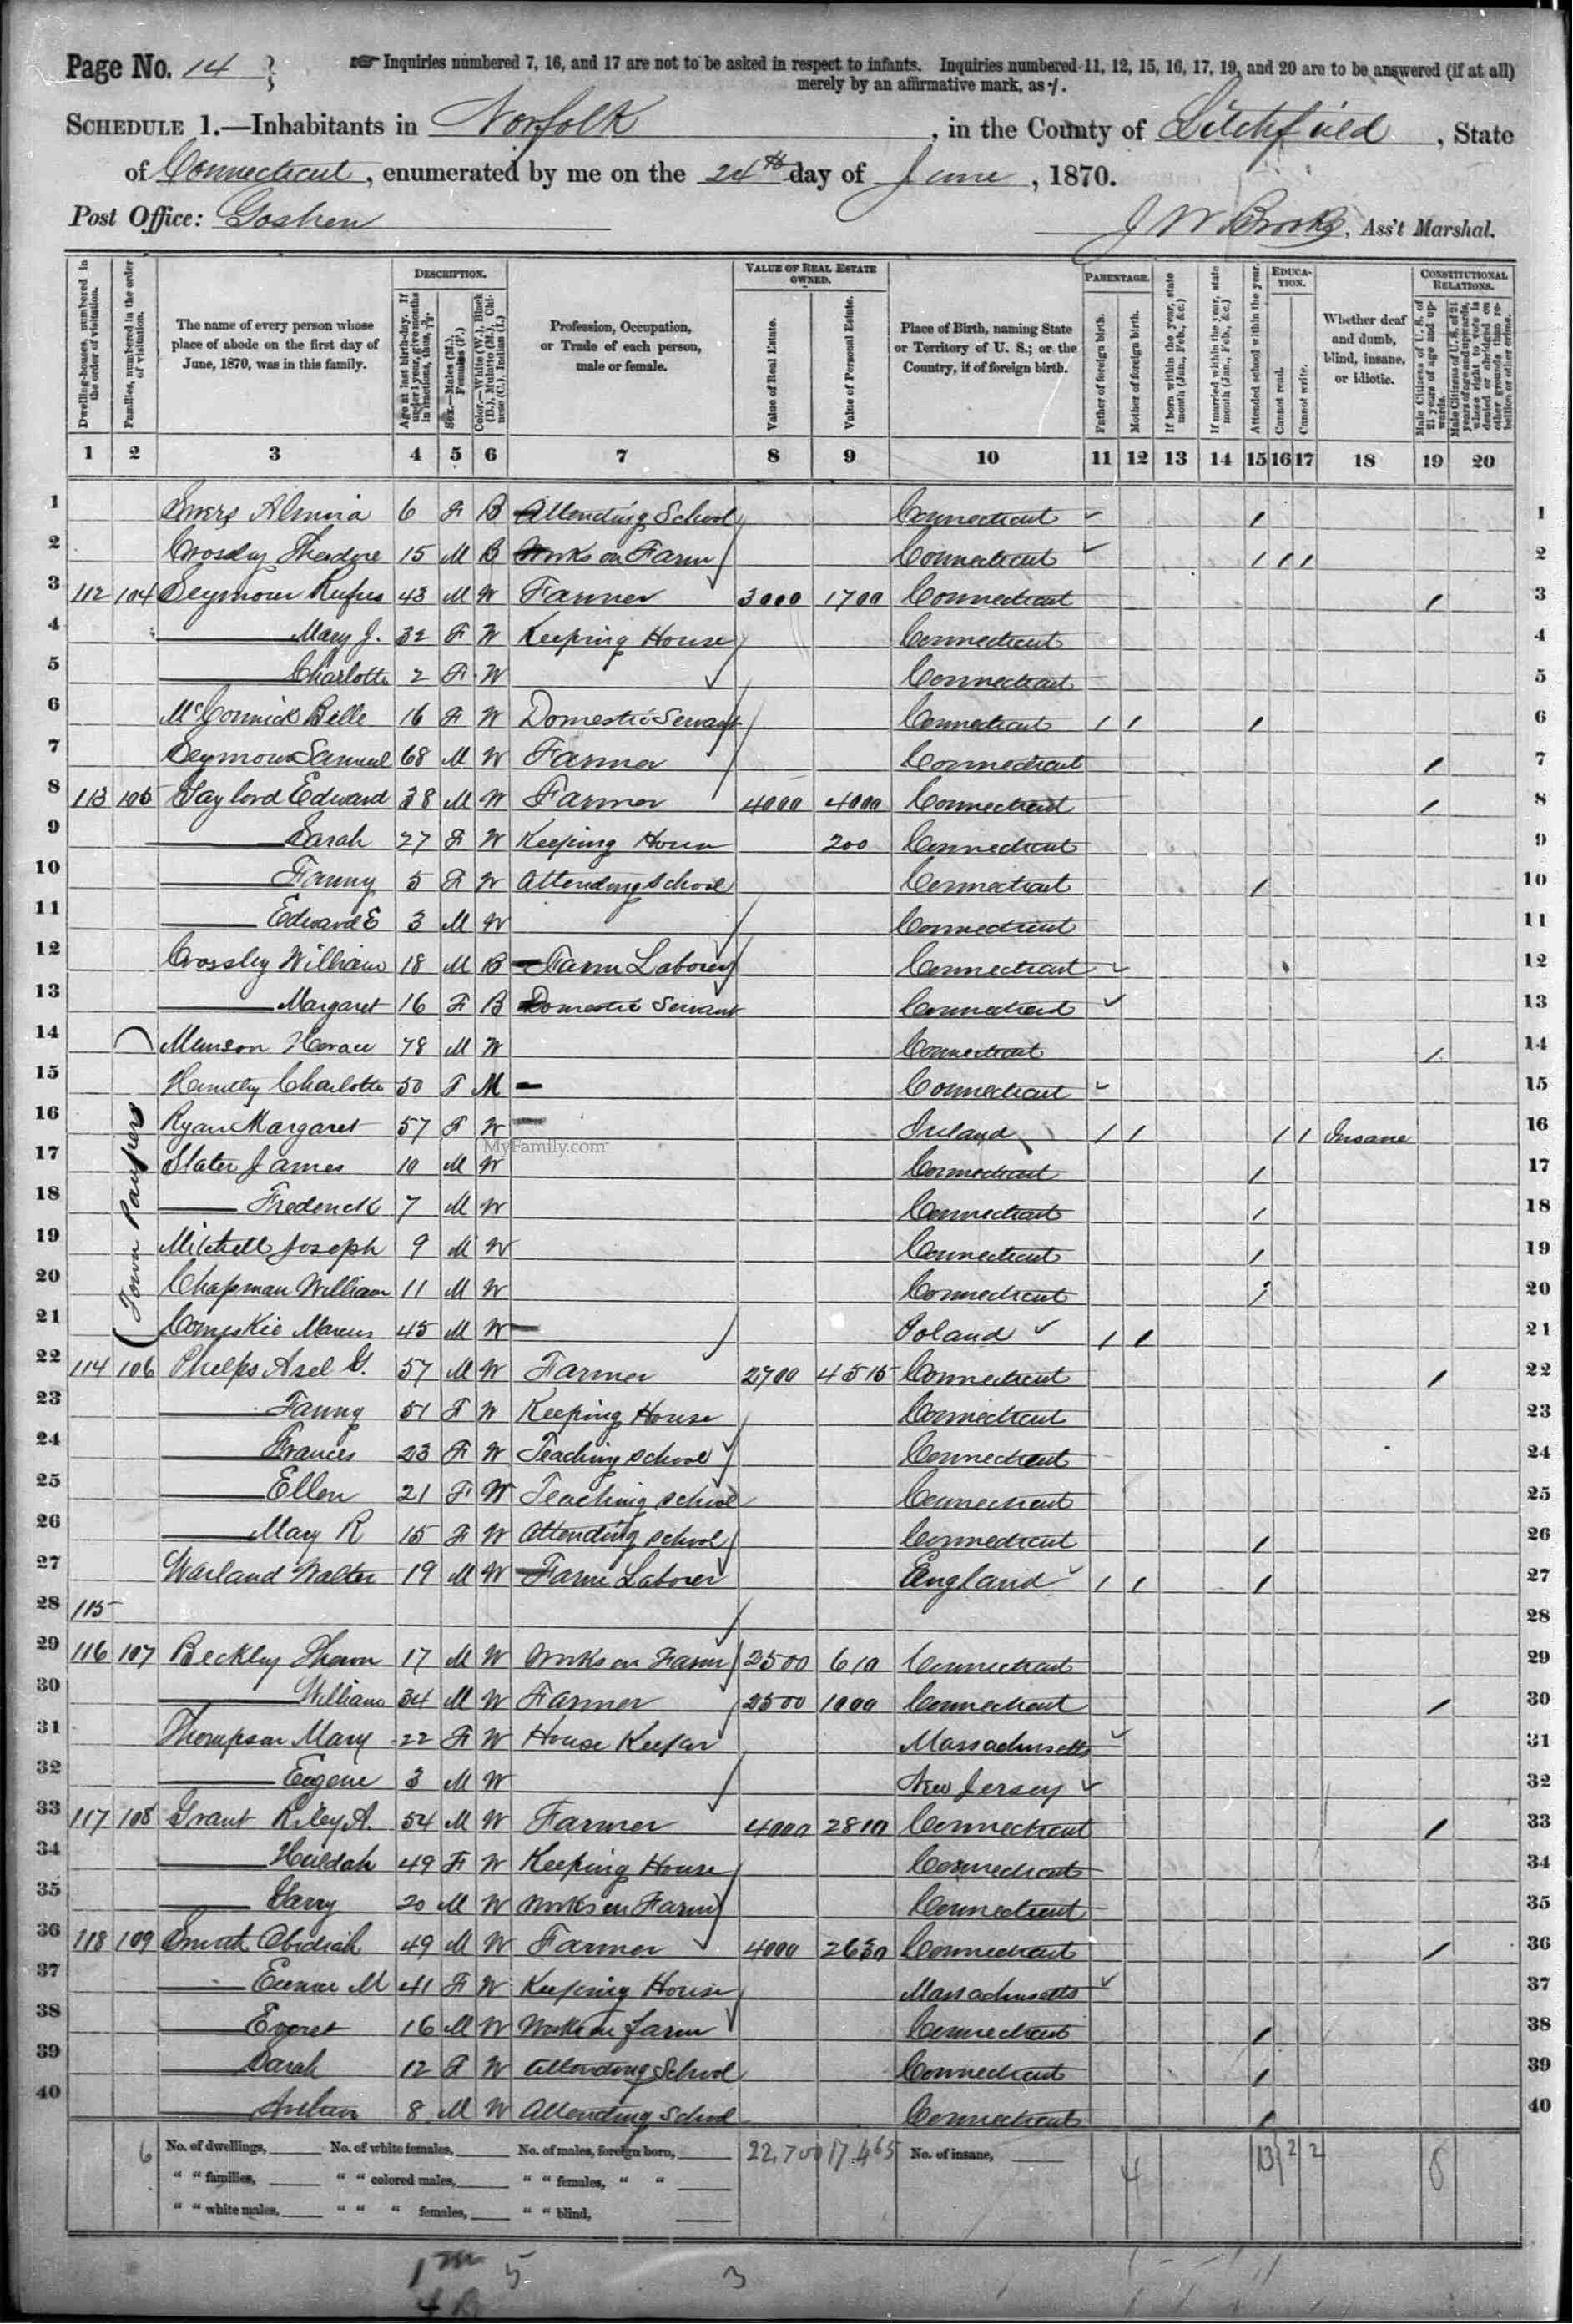 Page No. 14
Inquiries numbered 7, 16, and 17 are not to be asked in respect to infants. Inquiries numbered 11, 12, 15, 16, 17, 19, and 20 are to be answered (if at all)
merely by an affirmative mark, as /.
SCHEDULE 1.—Inhabitants in Norfolk, in the County of Litchfield, State
of Connecticut, enumerated by me on the 24th day of June, 1870.
Post Office: Goshen
J W Brooks, Ass't Marshal.
Dwelling-houses, numbered in the order of visitation.
Families, numbered in the order of visitation.
The name of every person whose place of abode on the first day of June, 1870, was in this family.
DESCRIPTION.
Age at last birth-day. If under 1 year, give months in fractions, thus,
Sex.—Males (M.), Females (F.)
Color.—White (W.), Black (B.), Mulatto (M.), Chinese (C.), Indian (I.)
Profession, Occupation, or Trade of each person, male or female.
VALUE OF REAL ESTATE OWNED.
Value of Real Estate.
Value of Personal Estate.
Place of Birth, naming State or Territory of U. S.; or the Country, if of foreign birth.
PARENTAGE.
Father of foreign birth.
Mother of foreign birth.
If born within the year, state month (Jan., Feb., &c.)
If married within the year, state month (Jan., Feb., &c.)
Attended school within the year.
EDUCATION.
Cannot read.
Cannot write.
Whether deaf and dumb, blind, insane, or idiotic.
CONSTITUTIONAL RELATIONS.
Male Citizens of U. S. of 21 years of age and upwards.
Male Citizens of U. S. of 21 years of age and upwards, whose right to vote is denied or abridged on other grounds than rebellion or other crime.
1 2 3 4 5 6 7 8 9 10 11 12 13 14 15 16 17 18 19 20
1 Almira 6 F B Attending School Connecticut / 1
2 Crossley Theodore 15 M B Works on Farm Connecticut / / / 2
3 112 104 Seymour Rufus 43 M W Farmer 3000 1700 Connecticut / 3
4 Mary J. 32 F W Keeping House Connecticut 4
5 Charlotte 2 F W Connecticut 5
6 McCormick Belle 16 F W Domestic Servant Connecticut / / / 6
7 Seymour Samuel 68 M W Farmer Connecticut / 7
8 113 105 Gaylord Edward 38 M W Farmer 4000 4000 Connecticut / 8
9 Sarah 27 F W Keeping House 200 Connecticut 9
10 Fanny 5 F W Attending School Connecticut / 10
11 Edward E 3 M W Connecticut 11
12 Crossley William 18 M B Farm Laborer Connecticut 12
13 Margaret 16 F B Domestic Servant Connecticut 13
14 Munson Horace 78 M W Connecticut / 14
15 Charlotte 50 F M Connecticut 15
16 Ryan Margaret 57 F W Ireland / / / / Insane 16
17 Slater James 10 M W Connecticut / 17
18 Frederick 7 M W Connecticut / 18
19 Mitchell Joseph 9 M W Connecticut / 19
20 Chapman William 11 M W Connecticut / 20
21 Marcus 45 M W Poland / / 21
Town Paupers
MyFamily.com
22 114 106 Phelps Asel G. 57 M W Farmer 2700 4515 Connecticut / 22
23 Fanny 51 F W Keeping House Connecticut 23
24 Frances 23 F W Teaching School Connecticut 24
25 Ellen 21 F W Teaching School Connecticut 25
26 Mary R 15 F W Attending School Connecticut / 26
27 Warland Walter 19 M W Farm Laborer England / / / 27
28 115 28
29 116 107 Beckley 17 M W Works on Farm 2500 610 Connecticut 29
30 William 34 M W Farmer 2500 1000 Connecticut / 30
31 Thompson Mary 22 F W House Keeper Massachusetts 31
32 Eugene 3 M W New Jersey 32
33 117 108 Grant Riley A. 54 M W Farmer 4000 2810 Connecticut / 33
34 Huldah 49 F W Keeping House Connecticut 34
35 Harry 20 M W Works on Farm Connecticut 35
36 118 109 Smith Obidiah 49 M W Farmer 4000 2630 Connecticut / 36
37 M 41 F W Keeping House Massachusetts 37
38 Everet 16 M W Works on farm Connecticut / 38
39 Sarah 12 F W Attending School Connecticut / 39
40 8 M W Attending School Connecticut / 40
6 No. of dwellings, No. of white females, No. of males, foreign born, 22,700 17,465 No. of insane, 4 13 2 2 8
" " families, " " colored males, " " females, " "
" " white males, " " " females, " " blind,
5 3